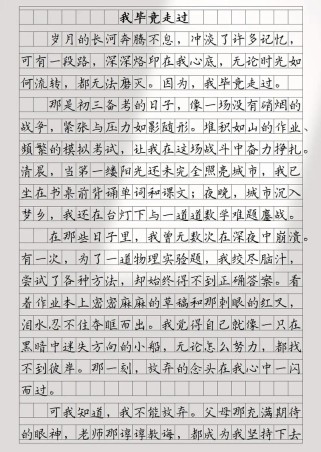 我毕竟走过
岁月的长河奔腾不息，冲淡了许多记忆，
可有一段路，深深烙印在我心底，无论时光如
何流转，都无法磨灭。因为，我毕竟走过。
那是初三备考的日子，像一场没有硝烟的
战争，紧张与压力如影随形。堆积如山的作业、
频繁的模拟考试，让我在这场战斗中奋力挣扎。
清晨，当第一缕阳光还未完全照亮城市，我已
坐在书桌前背诵单词和课文；夜晚，城市沉入
梦乡，我还在台灯下与一道道数学难题鏖战。
在那些日子里，我曾无数次在深夜中崩溃。
有一次，为了一道物理实验题，我绞尽脑汁，
尝试了各种方法，却始终得不到正确答案。看
着作业本上密密麻麻的草稿和那刺眼的红叉，
泪水忍不住夺眶而出。我觉得自己就像一只在
黑暗中迷失方向的小船，无论怎么努力，都找
不到彼岸。那一刻，放弃的念头在我心中一闪
而过。
可我知道，我不能放弃。父母那充满期待
的眼神，老师那谆谆教诲，都成为我坚持下去